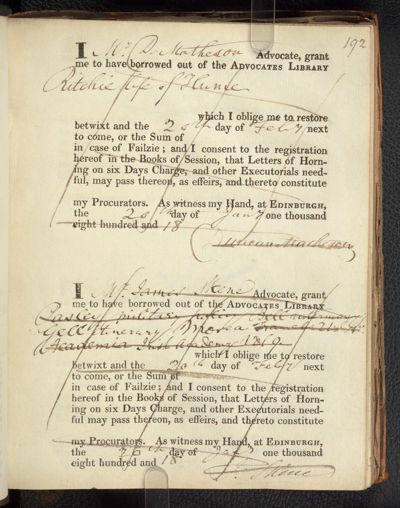 192
I Mr. D. Matheson Advocate, grant
me to have borrowed out of the ADVOCATES LIBRARY
Ritchie life of Hume
which I oblige me to restore
betwixt and the 20th day of Feby next
to come, or the Sum of
in case of Failzie; and I consent to the registration
hereof in the Books of Session, that Letters of Horn-
ing on six Days Charge, and other Executorials need-
ful, may pass thereon, as effeirs, and thereto constitute
my Procurators. As witness my Hand, at EDINBURGH,
the day of Jany one thousand
eight hundred and 18
Duncan Matheson
I Mr. James Skene Advocate, grant
me to have borrowed out of the ADVOCATES LIBRARY
Pasley military
Gell Itinerary Morea
Academia
which I oblige me to restore
betwixt and the 20th day of Feby next
to come, or the Sum of
in case of Failzie; and I consent to the registration
hereof in the Books of Session, that Letters of Horn-
ing on six Days Charge, and other Executorials need-
ful may pass thereon, as effeirs, and thereto constitute
my Procurators. As witness my Hand, at EDINBURGH,
the 26th day of Jany one thousand
eight hundred and 18
Skene